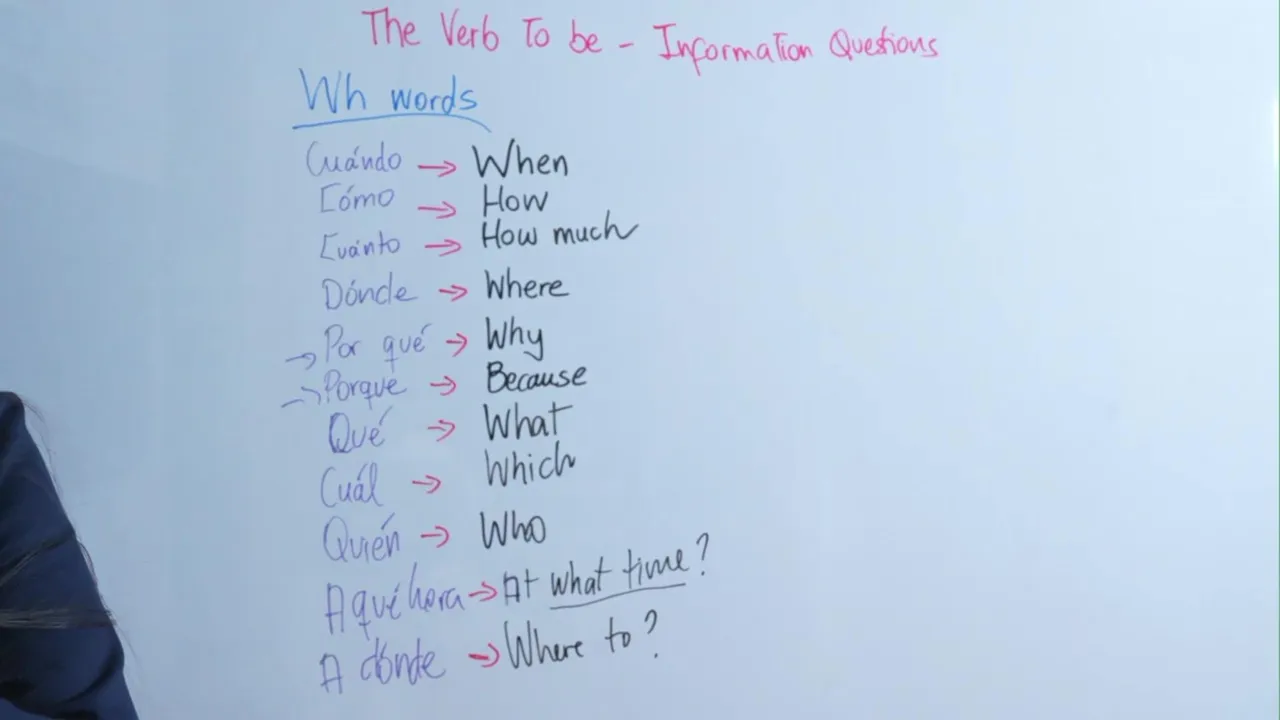 The Verb To be - Information Questions
Wh words
Cuándo → When
Cómo → How
Cuánto → How much
Dónde → Where
→ Por qué → Why
→ Porque → Because
Qué → What
Cuál → Which
Quién → Who
A qué hora → At what time?
A dónde → Where to?